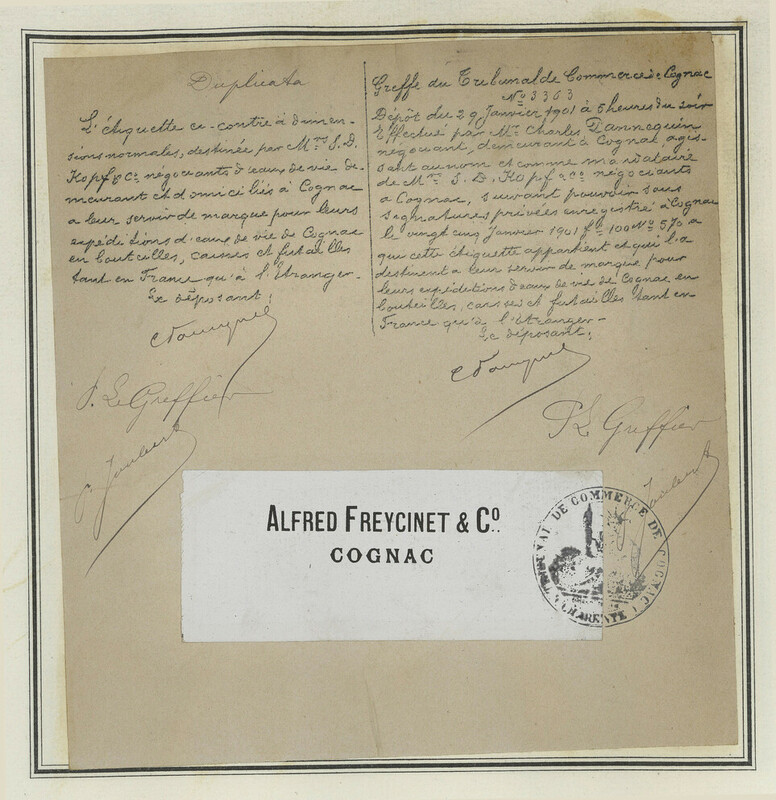 Duplicata
L'étiquette ci-contre à dimen-
sions normales, destinée par Mrs S. D.
Kopf & Co négociants d'eaux de vie de-
meurant et domiciliés à Cognac
a leur servir de marque pour leurs
expéditions d'eaux de vie de Cognac
en bouteilles, caisses et futailles
tant en France qu'à l'étranger-
Le déposant,
P. Le Greffier
P. Joubert
Greffe du Tribunal de Commerce de Cognac
No 3363
Dépôt du 29 Janvier 1901 à 5 heures du soir
Effectué par Mr Charles Tannequin
négociant, demeurant à Cognac, agis-
sant au nom et comme mandataire
de Mrs S. D. Kopf & Co négociants
à Cognac, suivant pouvoir sous
signatures privées enregistré à Cognac
le vingt cinq Janvier 1901 fo 100 No 570
que cette étiquette appartient et qu'il la
destinent a leur servir de marque pour
leurs expéditions d'eaux de vie de Cognac en
bouteilles, caisses et futailles tant en-
France qu'à l'étranger-
Le déposant,
P. Le Greffier
Joubert
ALFRED FREYCINET & Co.
COGNAC
TRIBUNAL DE COMMERCE DE COGNAC
CHARENTE